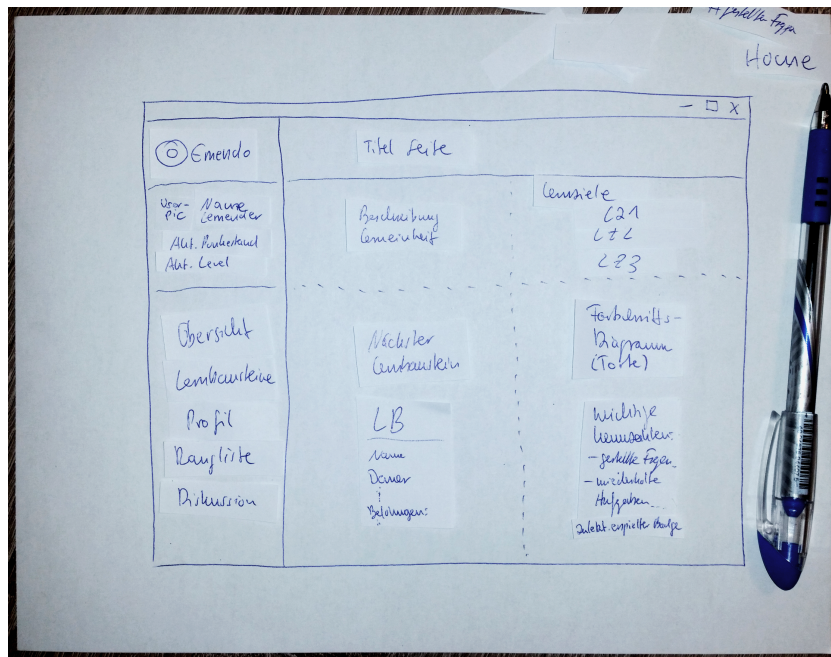 Home
- □ X
Emendo
Titel Seite
User- Name
Pic Lernender
Akt. Punktestand
Akt. Level
Beschreibung
Lerneinheit
Lernziele
LZ1
LZ2
LZ3
Übersicht
Lernbausteine
Profil
Rangliste
Diskussion
Nächster
Lernbaustein
LB
Name
Dauer
Belohnungen:
Fortschritts-
Diagramm
(Torte)
Wichtige
Kennzahlen:
- gestellte Fragen
- wiederholte
Aufgaben...
zuletzt erspielter Badge